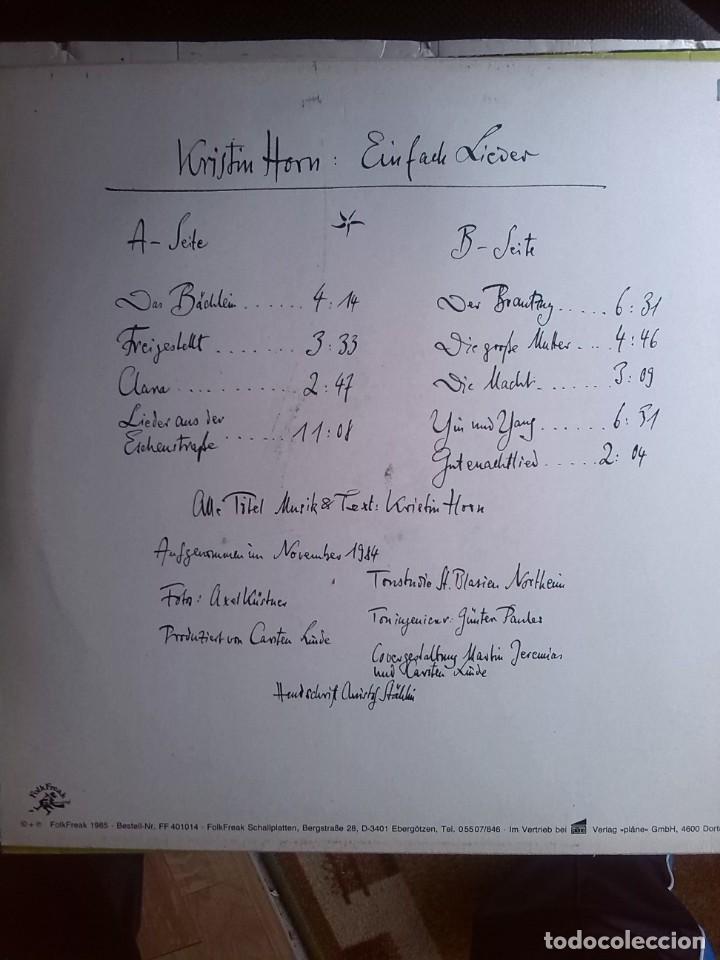 Kristin Horn: Einfach Lieder
A-Seite
Das Bächlein ...... 4:14
Freigestellt ........ 3:33
Clara ........... 2:47
Lieder aus der
Eichenstraße ...... 11:08
B-Seite
Der Brautzug ..... 6:31
Die große Mutter .... 4:46
Die Macht ...... 3:09
Yin und Yang ...... 6:51
Gutenachtlied ..... 2:04
Alle Titel Musik & Text: Kristin Horn
Aufgenommen im November 1984
Foto: Axel Küstner
Produziert von Carsten Linde
Tonstudio St. Blasien Northeim
Toningenieur: Günter Pauler
Covergestaltung Martin Jeremias
und Carsten Linde
Handschrift Christof Stählin
FolkFreak
©+℗ FolkFreak 1985 · Bestell-Nr. FF 401014 · FolkFreak Schallplatten, Bergstraße 28, D-3401 Ebergötzen, Tel. 05507/846 · Im Vertrieb bei Verlag »pläne« GmbH, 4600 Dort
todocoleccion
todocoleccion.net